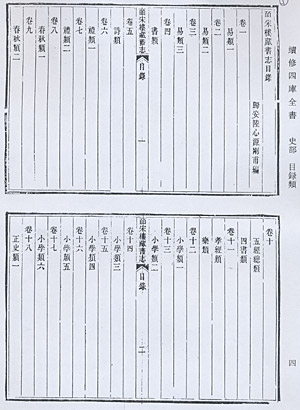 續修四庫全書 史部 目錄類
四
皕宋樓藏書志目錄
歸安陸心源剛甫編
卷一
易類一
卷二
易類二
卷三
易類三
卷四
書類
皕宋樓藏書志 目錄 一
卷五
詩類
卷六
禮類一
卷七
禮類二
卷八
春秋類一
卷九
春秋類二
卷十
五經總類
四書類
卷十一
孝經類
樂類
卷十二
小學類一
卷十三
小學類二
皕宋樓藏書志 目錄 二
卷十四
小學類三
卷十五
小學類四
卷十六
小學類五
卷十七
小學類六
卷十八
正史類一